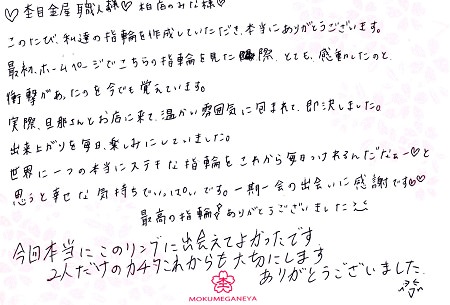 ♡杢目金屋 職人様♡ 柏店のみな様♡
このたび、私達の指輪を作成していただき、本当にありがとうございます。
最初、ホームページでこちらの指輪を見た際、とても、感動したのと、
衝撃があったのを今でも覚えています。
実際、旦那さんとお店に来て、温かい雰囲気に包まれて、即決しました。
出来上がりを毎日、楽しみにしていました。
世界に一つの本当にステキな指輪をこれから毎日つけれるんだなぁー♡と
思うと幸せな気持ちでいっぱいです。一期一会の出会いに感謝です♡
最高の指輪ありがとうございました
今回本当にこのリングに出会えてよかったです
2人だけのカタチこれからも大切にします
ありがとうございました。
MOKUMEGANEYA